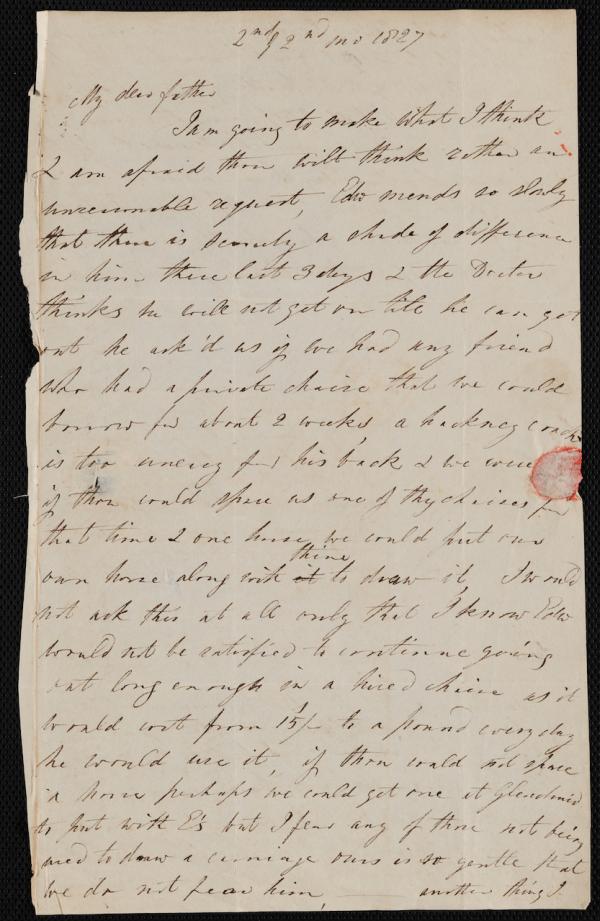 2nd of 2nd mo 1827
My dear father
I am going to make what I think
& am afraid thou wilt think rather an
unreasonable request, Edw mends so slowly
that there is scarcely a shade of difference
in him these last 3 days & the Doctor
thinks he will not get on till he can get
out he ask'd us if we had any friend
who had a private chaise that we could
borrow for about 2 weeks, a hackney coach
is too uneasy for his back & we
if thou could spare us one of thy chaises for
that time & one horse, we could put our
own horse along with it thine to draw it, I would
not ask this at all only that I know Edw
would not be satisfied to continue going
out long enough in a hired chaise as it
would cost from 15/- to a pound every day
he would use it, if thou could not spare
a horse perhaps we could get one at
to put with E's but I fear any of those not being
used to draw a carriage ours is so gentle that
we do not fear him, — another thing I